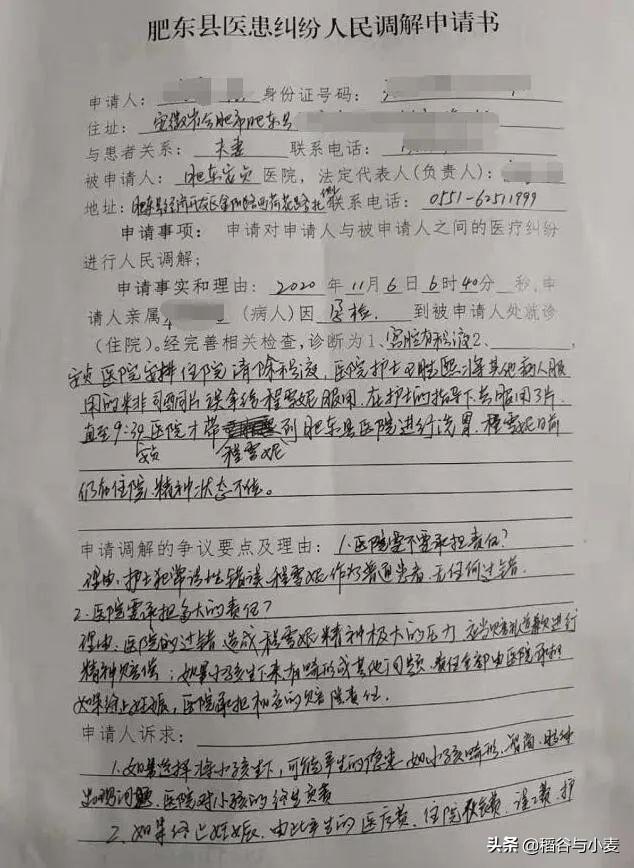 肥东县医患纠纷人民调解申请书
申请人: 身份证号码:
住址: 安徽省合肥市肥东县
与患者关系: 夫妻 联系电话:
被申请人: 肥东安贞 医院, 法定代表人(负责人):
地址: 肥东县经济开发区金阳路 联系电话: 0551-62511999
申请事项: 申请对申请人与被申请人之间的医疗纠纷
进行人民调解;
申请事实和理由: 2020 年 11 月 6 日 6 时 40 分 秒,申
请人亲属 (病人)因 孕检. 到被申请人处就诊
(住院)。经完善相关检查,诊断为 1、宫腔有积液 2、
安贞医院安排住院清除积液, 医院护士 将其他病人服
用的米非司酮片误拿给程雪妮服用. 在护士的指导下共服用3片.
直至9:30医院才带 到肥东县医院进行洗胃. 程雪妮目前
安贞 程雪妮
仍在住院.精神状态不佳。
申请调解的争议要点及理由: 1.医院需不需承担责任?
理由:护士犯常识性错误.程雪妮作为普通患者.无任何过错.
2.医院需承担多大的责任?
理由:医院的过错造成程雪妮精神极大的压力.应当 进行
精神赔偿; 如果小孩生下来有畸形或其他问题.责任全部由医院承担
如果终止妊娠,医院承担相应的赔偿责任.
申请人诉求:
1.如果选择 小孩生下,可能产生的 如小孩畸形、智商、
出现问题.医院对小孩的终生负责
2.如果终止妊娠.由此产生的医疗费、住院 费、误工费、护
头条 @稻谷与小麦